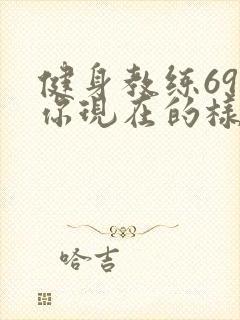 健身教练69
你现在的樣
哈吉